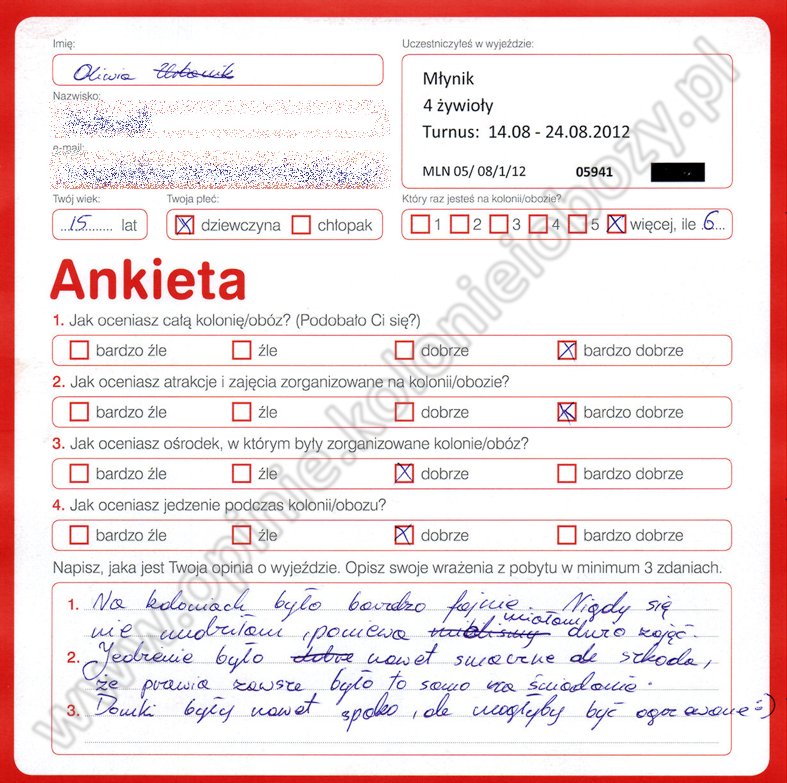 Imię:
Oliwia
Uczestniczyłeś w wyjeździe:
Młynik
4 żywioły
Turnus: 14.08 - 24.08.2012
MLN 05/ 08/1/12 05941
Nazwisko:
e-mail:
Twój wiek:
15 lat
Twoja płeć:
dziewczyna chłopak
Który raz jesteś na kolonii/obozie?
1 2 3 4 5 więcej, ile 6
Ankieta
1. Jak oceniasz całą kolonię/obóz? (Podobało Ci się?)
bardzo źle źle dobrze bardzo dobrze
2. Jak oceniasz atrakcje i zajęcia zorganizowane na kolonii/obozie?
bardzo źle źle dobrze bardzo dobrze
3. Jak oceniasz ośrodek, w którym były zorganizowane kolonie/obóz?
bardzo źle źle dobrze bardzo dobrze
4. Jak oceniasz jedzenie podczas kolonii/obozu?
bardzo źle źle dobrze bardzo dobrze
Napisz, jaka jest Twoja opinia o wyjeździe. Opisz swoje wrażenia z pobytu w minimum 3 zdaniach.
1. Na koloniach było bardzo fajnie. Nigdy się
nie nudziłam, poniewa miałam dużo zajęć.
2. Jedzenie było dobre nawet smaczne ale szkoda,
że prawia zawsze było to samo na śniadanie.
3. Domki były nawet spoko, ale mogłyby być ogrzewane :)
www.opinie.kolonieiobozy.pl